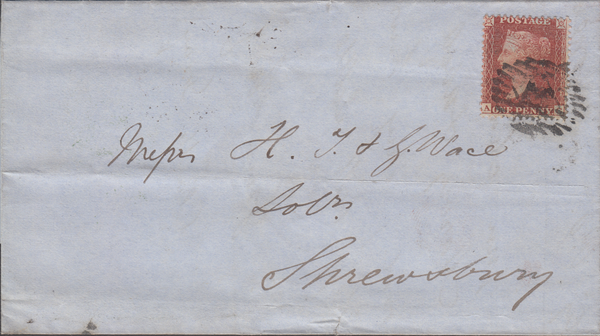 POSTAGE
ONE PENNY
A
Messrs H. T. & G. Wace
Solrs.
Shrewsbury.